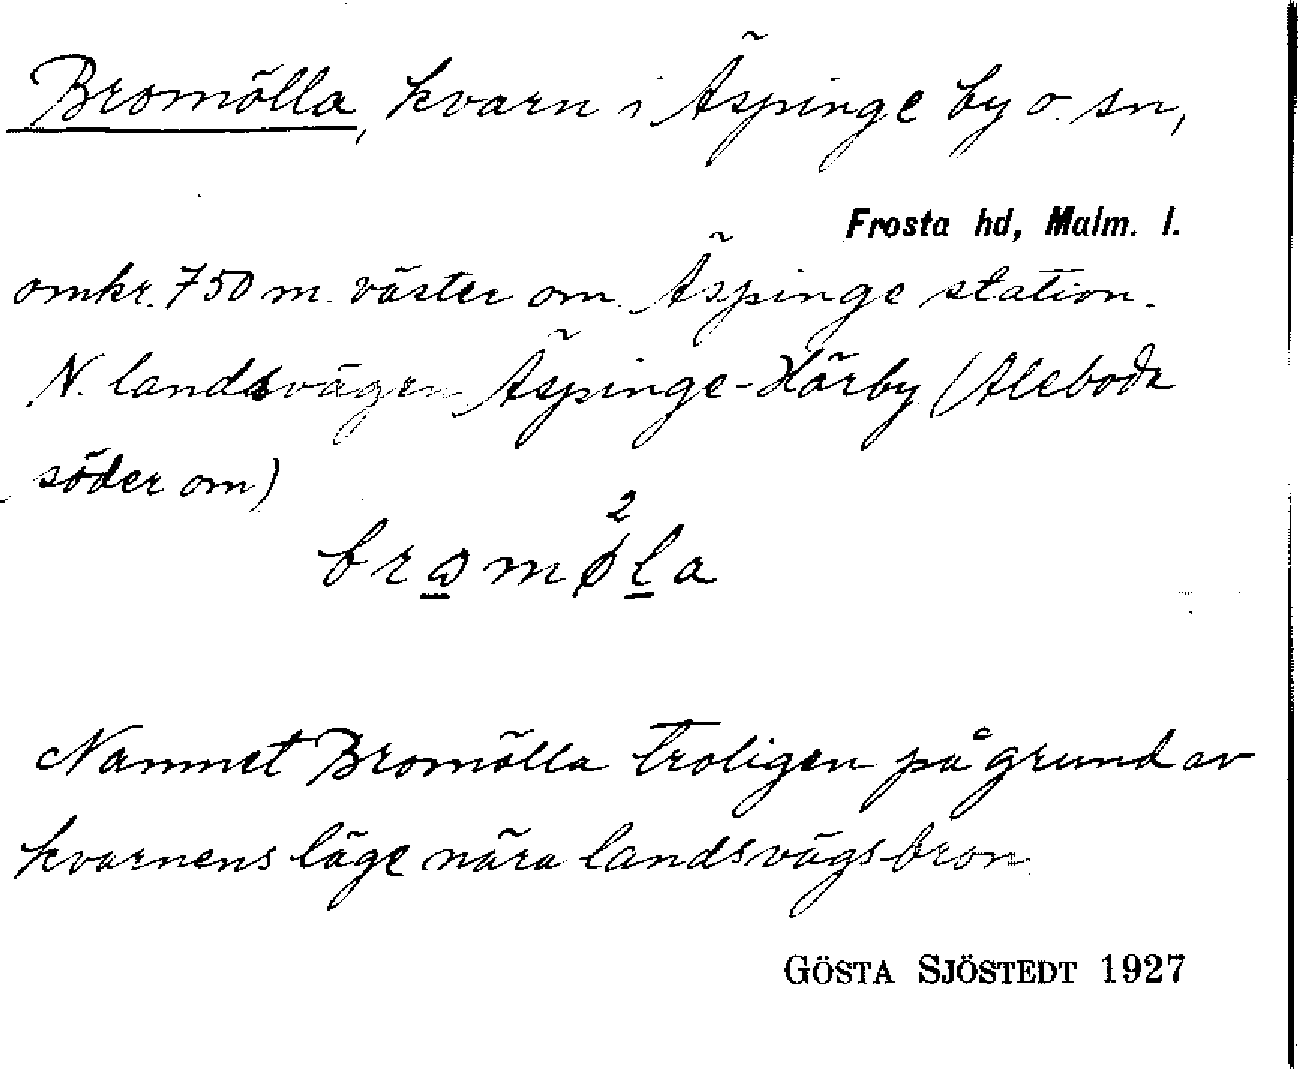 Bromölla, kvarn i Äspinge by o. sn,
Frosta hd, Malm. l.
omkr. 750 m. väster om Äspinge station.
N. landsvägen Äspinge-Hörby (Aleboda
söder om)
Namnet Bromölla troligen på grund av
kvarnens läge nära landsvägsbron
GÖSTA SJÖSTEDT 1927